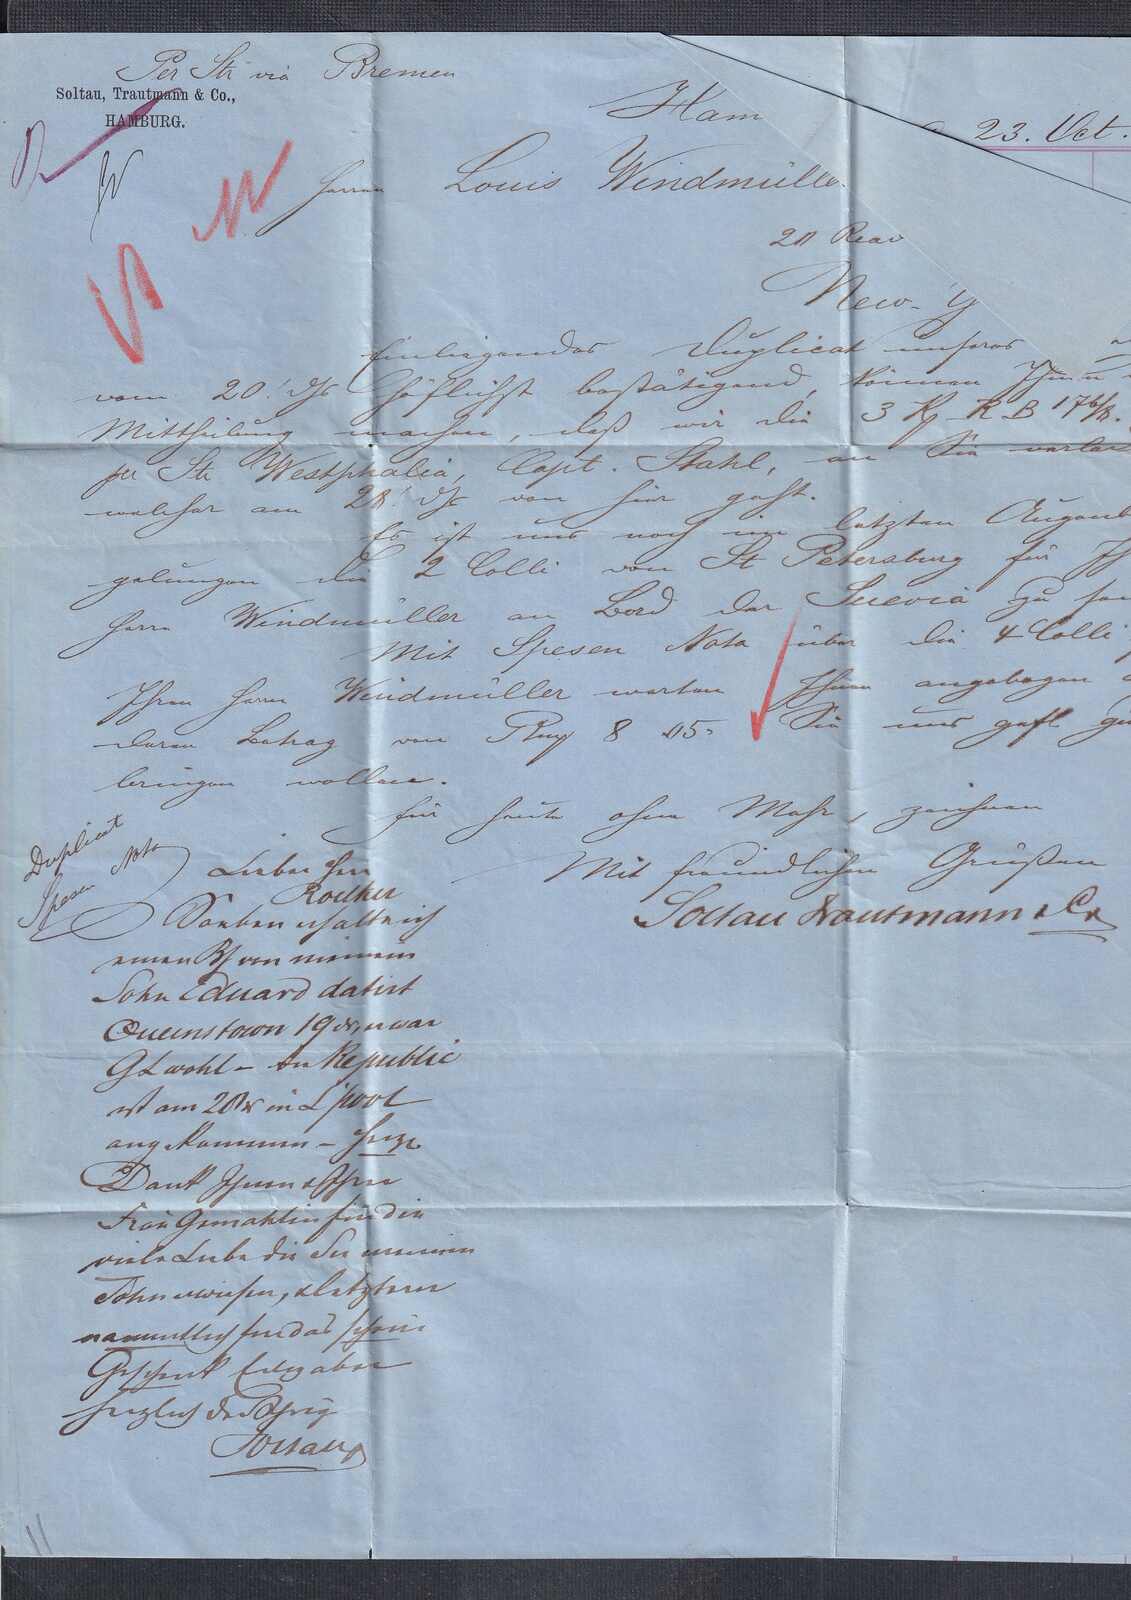 Per Str via Bremen
Soltau, Trautmann & Co.,
HAMBURG.
Ham 23. Oct.
Herrn Louis Windmülle
20 Reav
New-Y
Einliegendes Duplicat unseres
vom 20. ds höflichst bestätigend, können Ihnen
Mittheilung machen, daß wir die 3 K RB 176/8.
per Str Westphalia, Capt. Stahl, an Sie verla
welcher am 28. ds von hier geht.
Es ist uns noch im letzten Augenb
gelungen die 2 Colli von St Petersburg für Ih
Herrn Windmüller an Bord der Suevia zu
Mit Spesen Nota über die 4 Colli
Ihren Herrn Windmüller warten Ihnen angebogen
deren Betrag von 8 05 Sie uns gefl gu
bringen wollen.
Für heute ohne Mehr, zeichnen
Mit freundlichen Grüßen
Soltau Trautmann & Co
Duplicat
Spesen Nota
Lieber Herr
Roelker
Soeben erhalte ich
einen Bf von meinem
Sohn Eduard datirt
Queenstown 19 er war
Gt wohl – die Republic
ist am 20 in L'pool
angekommen –
Dank Ihnen & Ihrer
Frau Gemahlin für die
viele Liebe die Sie meinem
Sohn erwiesen, & letzterer
namentlich für das schöne
Geschenk
herzlich der Ihrig
Soltau